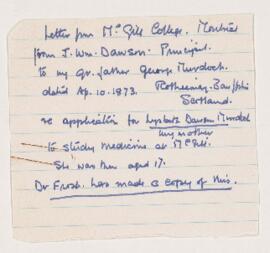 Letter from McGill College. Montreal
from J. Wm. Dawson. Principal
to my gr. father George Murdoch.
dated Ap. 10. 1873. Rothiemay. Banffshire
Scotland.
re application for Dawson Murdoch
my mother
to study medicine at McGill.
She was then aged 17.
Dr Frosh. has made a copy of this.